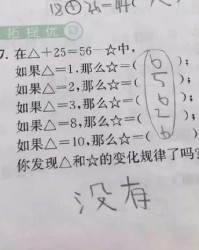 拓展优
7. 在△+25=56-☆中,
如果△=1,那么☆=( 6 );
如果△=2,那么☆=( 5 );
如果△=3,那么☆=( 6 );
如果△=8,那么☆=( 2 );
如果△=10,那么☆=( 6 );
你发现△和☆的变化规律了吗?
没有